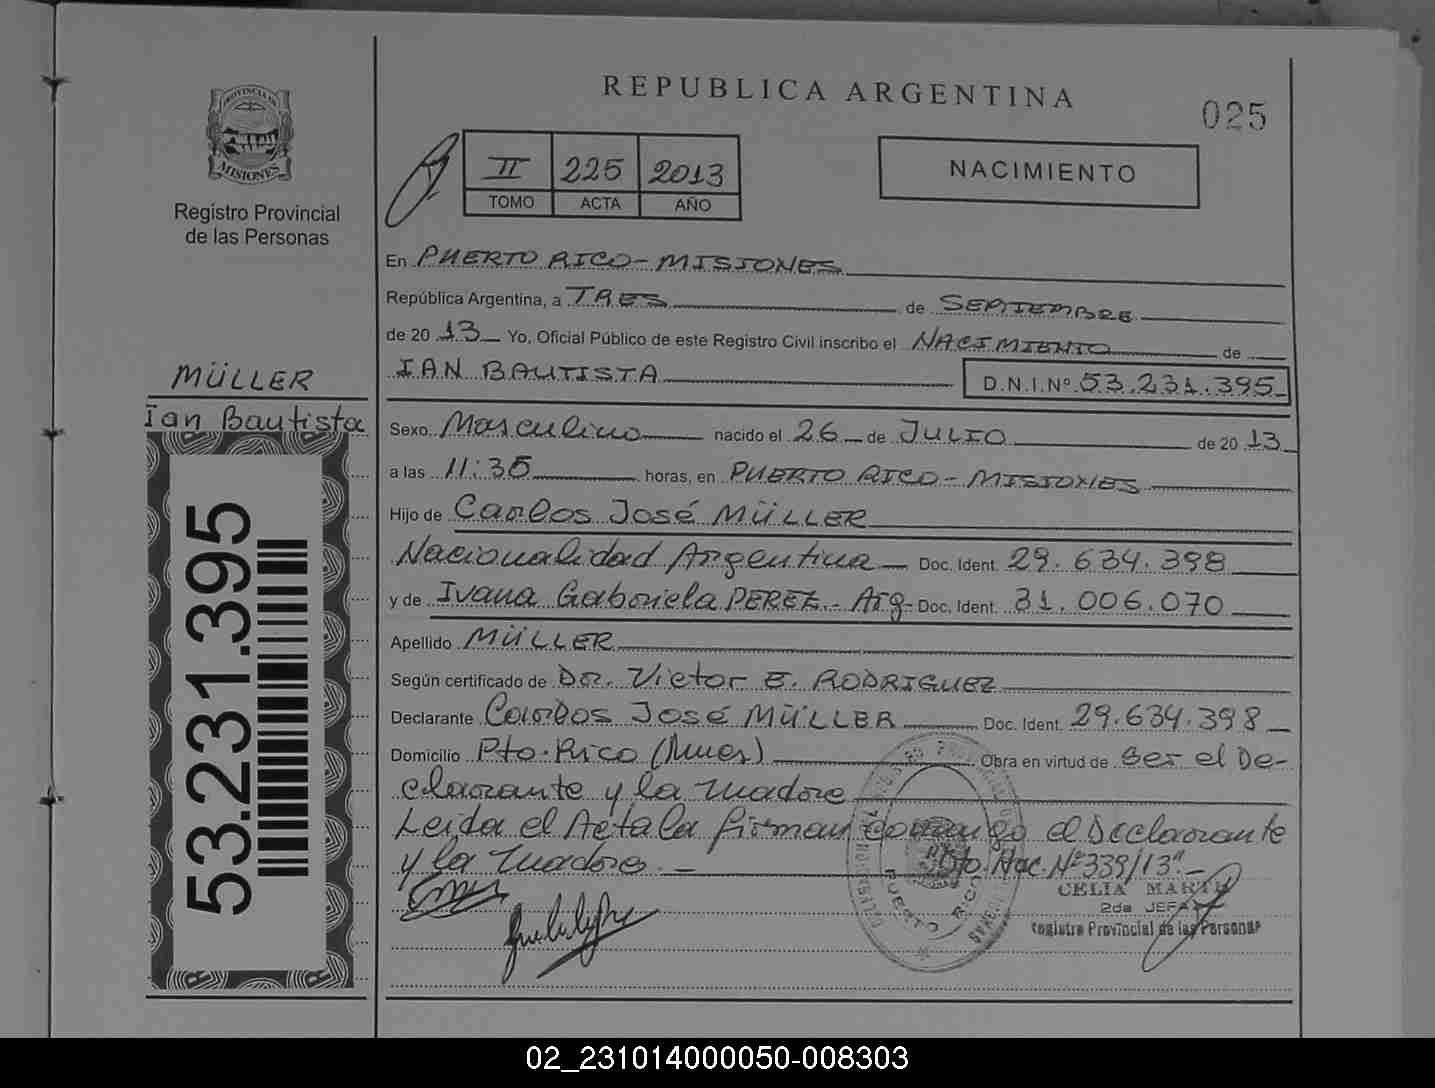 REPUBLICA ARGENTINA
025
PROVINCIA DE
MISIONES
Registro Provincial
de las Personas
II 225 2013
TOMO ACTA AÑO
NACIMIENTO
En PUERTO RICO - MISIONES
República Argentina, a TRES de SEPTIEMBRE
de 20 13 Yo, Oficial Público de este Registro Civil inscribo el NACIMIENTO de
IAN BAUTISTA D.N.I.Nº 53.231.395
MÜLLER
Ian Bautista
53.231.395
Sexo Masculino nacido el 26 de JULIO de 20 13
a las 11:35 horas, en PUERTO RICO - MISIONES
Hijo de Carlos José MÜLLER
Nacionalidad Argentina Doc. Ident. 29.634.398
y de Ivana Gabriela PEREZ.- Arg- Doc. Ident. 31.006.070
Apellido MÜLLER
Según certificado de Dr. Victor E. RODRIGUEZ
Declarante Carlos José MÜLLER Doc. Ident. 29.634.398
Domicilio Pto. Rico (Mnes) Obra en virtud de ser el De-
clarante y la madre
Leida el Acta la firman conmigo el Declarante
y la madre. — Nac. Nº 339/13".-
CELIA
2da JEFA
Registro Provincial de las Personas
PUERTO RICO
02_231014000050-008303